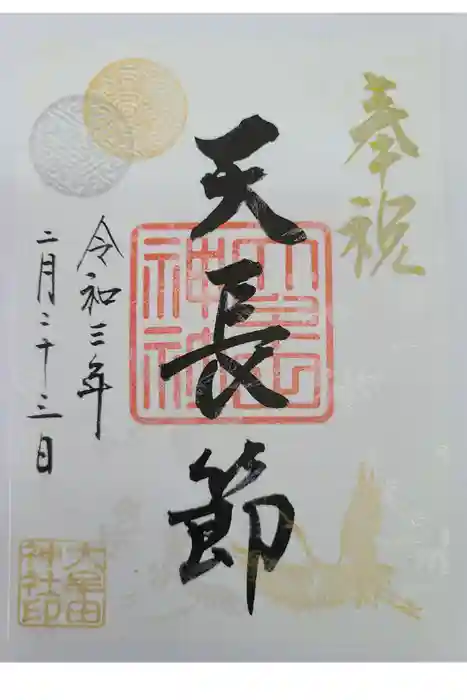 奉祝
天長節
令和三年
二月二十三日
大牟田
神社印